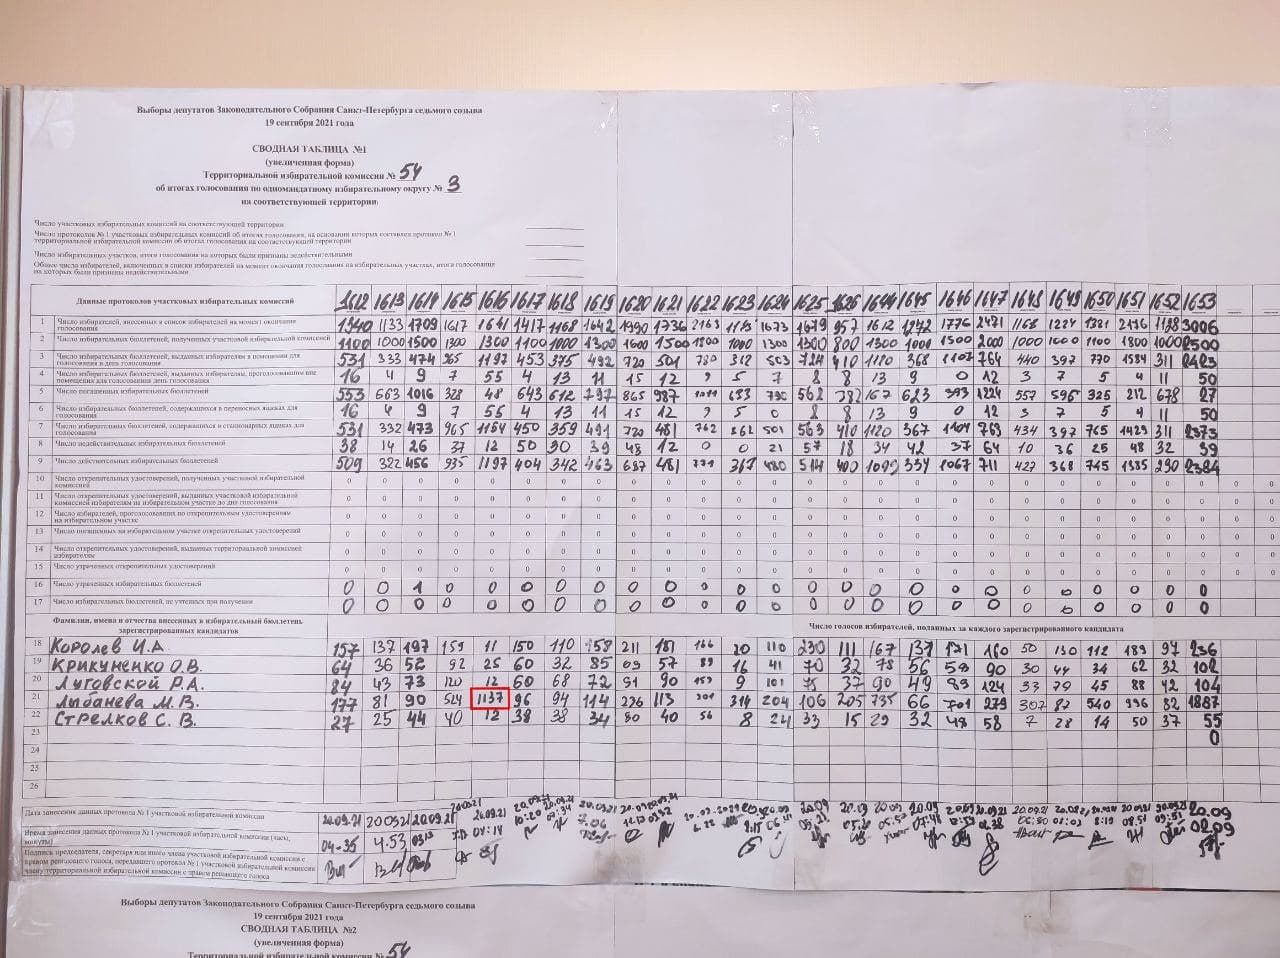 Выборы депутатов Законодательного Собрания Санкт-Петербурга седьмого созыва
19 сентября 2021 года
СВОДНАЯ ТАБЛИЦА №1
(увеличенная форма)
Территориальной избирательной комиссии № 54
об итогах голосования по одномандатному избирательному округу № 3
на соответствующей территории
Число участковых избирательных комиссий на соответствующей территории
Число протоколов № 1 участковых избирательных комиссий об итогах голосования, на основании которых составлен протокол № 1
территориальной избирательной комиссии об итогах голосования на соответствующей территории
Число избирательных участков, итоги голосования на которых были признаны недействительными
Общее число избирателей, включенных в списки избирателей на момент окончания голосования на избирательных участках, итоги голосования
на которых были признаны недействительными
Данные протоколов участковых избирательных комиссий 1612 1613 1614 1615 1616 1617 1618 1619 1620 1621 1622 1623 1624 1625 1626 1644 1645 1646 1647 1648 1649 1650 1651 1652 1653
1 Число избирателей, внесенных в список избирателей на момент окончания
голосования 1340 1133 1709 1617 1641 1417 1168 1642 1990 1736 2163 1113 1673 1679 957 1612 1776 2471 1224 3006
2 Число избирательных бюллетеней, полученных участковой избирательной комиссией 1100 1000 1500 1300 1300 1100 1000 1300 1600 1500 1800 1000 1300 1300 800 1300 1000 1500 2000 1000 1000 1100 1800 1000 2500
3 Число избирательных бюллетеней, выданных избирателям в помещении для
голосования в день голосования 531 333 474 965 1197 453 375 492 720 501 780 503 410 368 1107 764 440 397 770 1584 311 2423
4 Число избирательных бюллетеней, выданных избирателям, проголосовавшим вне
помещения для голосования в день голосования 16 4 9 7 55 4 13 11 15 12 9 5 7 8 8 13 9 0 12 3 7 5 4 11 50
5 Число погашенных избирательных бюллетеней 553 663 1016 328 48 643 612 797 865 987 1011 790 562 382 167 623 393 1224 557 596 325 212 678 27
6 Число избирательных бюллетеней, содержащихся в переносных ящиках для
голосования 16 4 9 7 55 4 13 11 15 12 9 5 0 8 8 13 9 0 12 3 7 5 4 11 50
7 Число избирательных бюллетеней, содержащихся в стационарных ящиках для
голосования 531 332 473 965 1154 450 359 491 720 481 762 362 501 563 410 1120 367 1104 763 434 397 765 1429 311 2373
8 Число недействительных избирательных бюллетеней 38 14 26 37 12 50 30 39 48 12 0 0 21 57 18 34 42 37 64 10 36 25 48 32 39
9 Число действительных избирательных бюллетеней 509 322 456 935 1197 404 342 463 687 481 771 367 480 514 400 334 1067 711 427 368 745 290 2384
10 Число открепительных удостоверений, полученных участковой избирательной
комиссией 0 0 0 0 0 0 0 0 0 0 0 0 0 0 0 0 0 0 0 0 0 0 0 0 0 0 0
11 Число открепительных удостоверений, выданных участковой избирательной
комиссией избирателям на избирательном участке до дня голосования 0 0 0 0 0 0 0 0 0 0 0 0 0 0 0 0 0 0 0 0 0 0 0 0 0 0 0
12 Число избирателей, проголосовавших по открепительным удостоверениям
на избирательном участке 0 0 0 0 0 0 0 0 0 0 0 0 0 0 0 0 0 0 0 0 0 0 0 0 0 0 0
13 Число погашенных на избирательном участке открепительных удостоверений 0 0 0 0 0 0 0 0 0 0 0 0 0 0 0 0 0 0 0 0 0 0 0 0 0 0 0
14 Число открепительных удостоверений, выданных территориальной комиссией
избирателям 0 0 0 0 0 0 0 0 0 0 0 0 0 0 0 0 0 0 0 0 0 0 0 0 0 0 0
15 Число утраченных открепительных удостоверений 0 0 0 0 0 0 0 0 0 0 0 0 0 0 0 0 0 0 0 0 0 0 0 0 0 0 0
16 Число утраченных избирательных бюллетеней 0 0 1 0 0 0 0 0 0 0 0 0 0 0 0 0 0 0 0 0 0 0 0 0 0
17 Число избирательных бюллетеней, не учтенных при получении 0 0 0 0 0 0 0 0 0 0 0 0 0 0 0 0 0 0 0 0 0 0 0 0 0
Фамилии, имена и отчества внесенных в избирательный бюллетень
зарегистрированных кандидатов
Число голосов избирателей, поданных за каждого зарегистрированного кандидата
18 Королев И.А. 157 137 197 159 11 150 110 158 211 181 166 20 110 230 111 167 137 171 160 50 130 112 189 97 236
19 Крикуненко О.В. 64 36 52 92 25 60 32 85 69 57 89 16 41 70 32 78 56 58 90 30 44 34 62 32 102
20 Луговской Р.А. 84 43 73 120 12 60 68 72 91 90 159 9 101 75 37 90 49 89 124 33 79 45 88 42 104
21 Лыбанева М.В. 177 81 90 524 1137 96 94 114 236 113 301 314 204 106 205 735 66 701 279 307 87 540 996 82 1887
22 Стрелков С.В. 27 25 44 40 12 38 38 34 80 40 56 8 24 33 15 29 32 48 58 7 28 14 50 37 55
23 0
24
25
26
Дата занесения данных протокола № 1 участковой избирательной комиссии 20.09.21 20.09.21 20.09.21
Время занесения данных протокола № 1 участковой избирательной комиссии (часы,
минуты) 04-35 4.53
Подпись председателя, секретаря или иного члена участковой избирательной комиссии с
правом решающего голоса, передавшего протокол № 1 участковой избирательной комиссии
члену территориальной избирательной комиссии с правом решающего голоса
Выборы депутатов Законодательного Собрания Санкт-Петербурга седьмого созыва
19 сентября 2021 года
СВОДНАЯ ТАБЛИЦА №2
(увеличенная форма)
Территориальной избирательной комиссии № 54